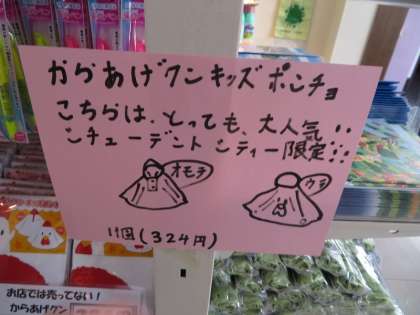 からあげクンキッズポンチョ
こちらは、とっても、大人気!!
シチューデントシティー限定!!
オモテ
ウラ
1個(324円)
お店では売ってない!
からあげクン